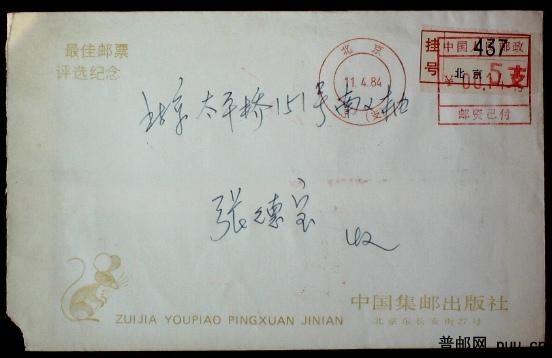 最佳邮票
评选纪念
北京
11.4.84
挂号
437
中国人民邮政
北京
5支
邮资已付
北京太平桥151号南义轴
张德宝 收
ZUIJIA YOUPIAO PINGXUAN JINIAN
中国集邮出版社
北京东长安街27号
普邮网 puu.cn